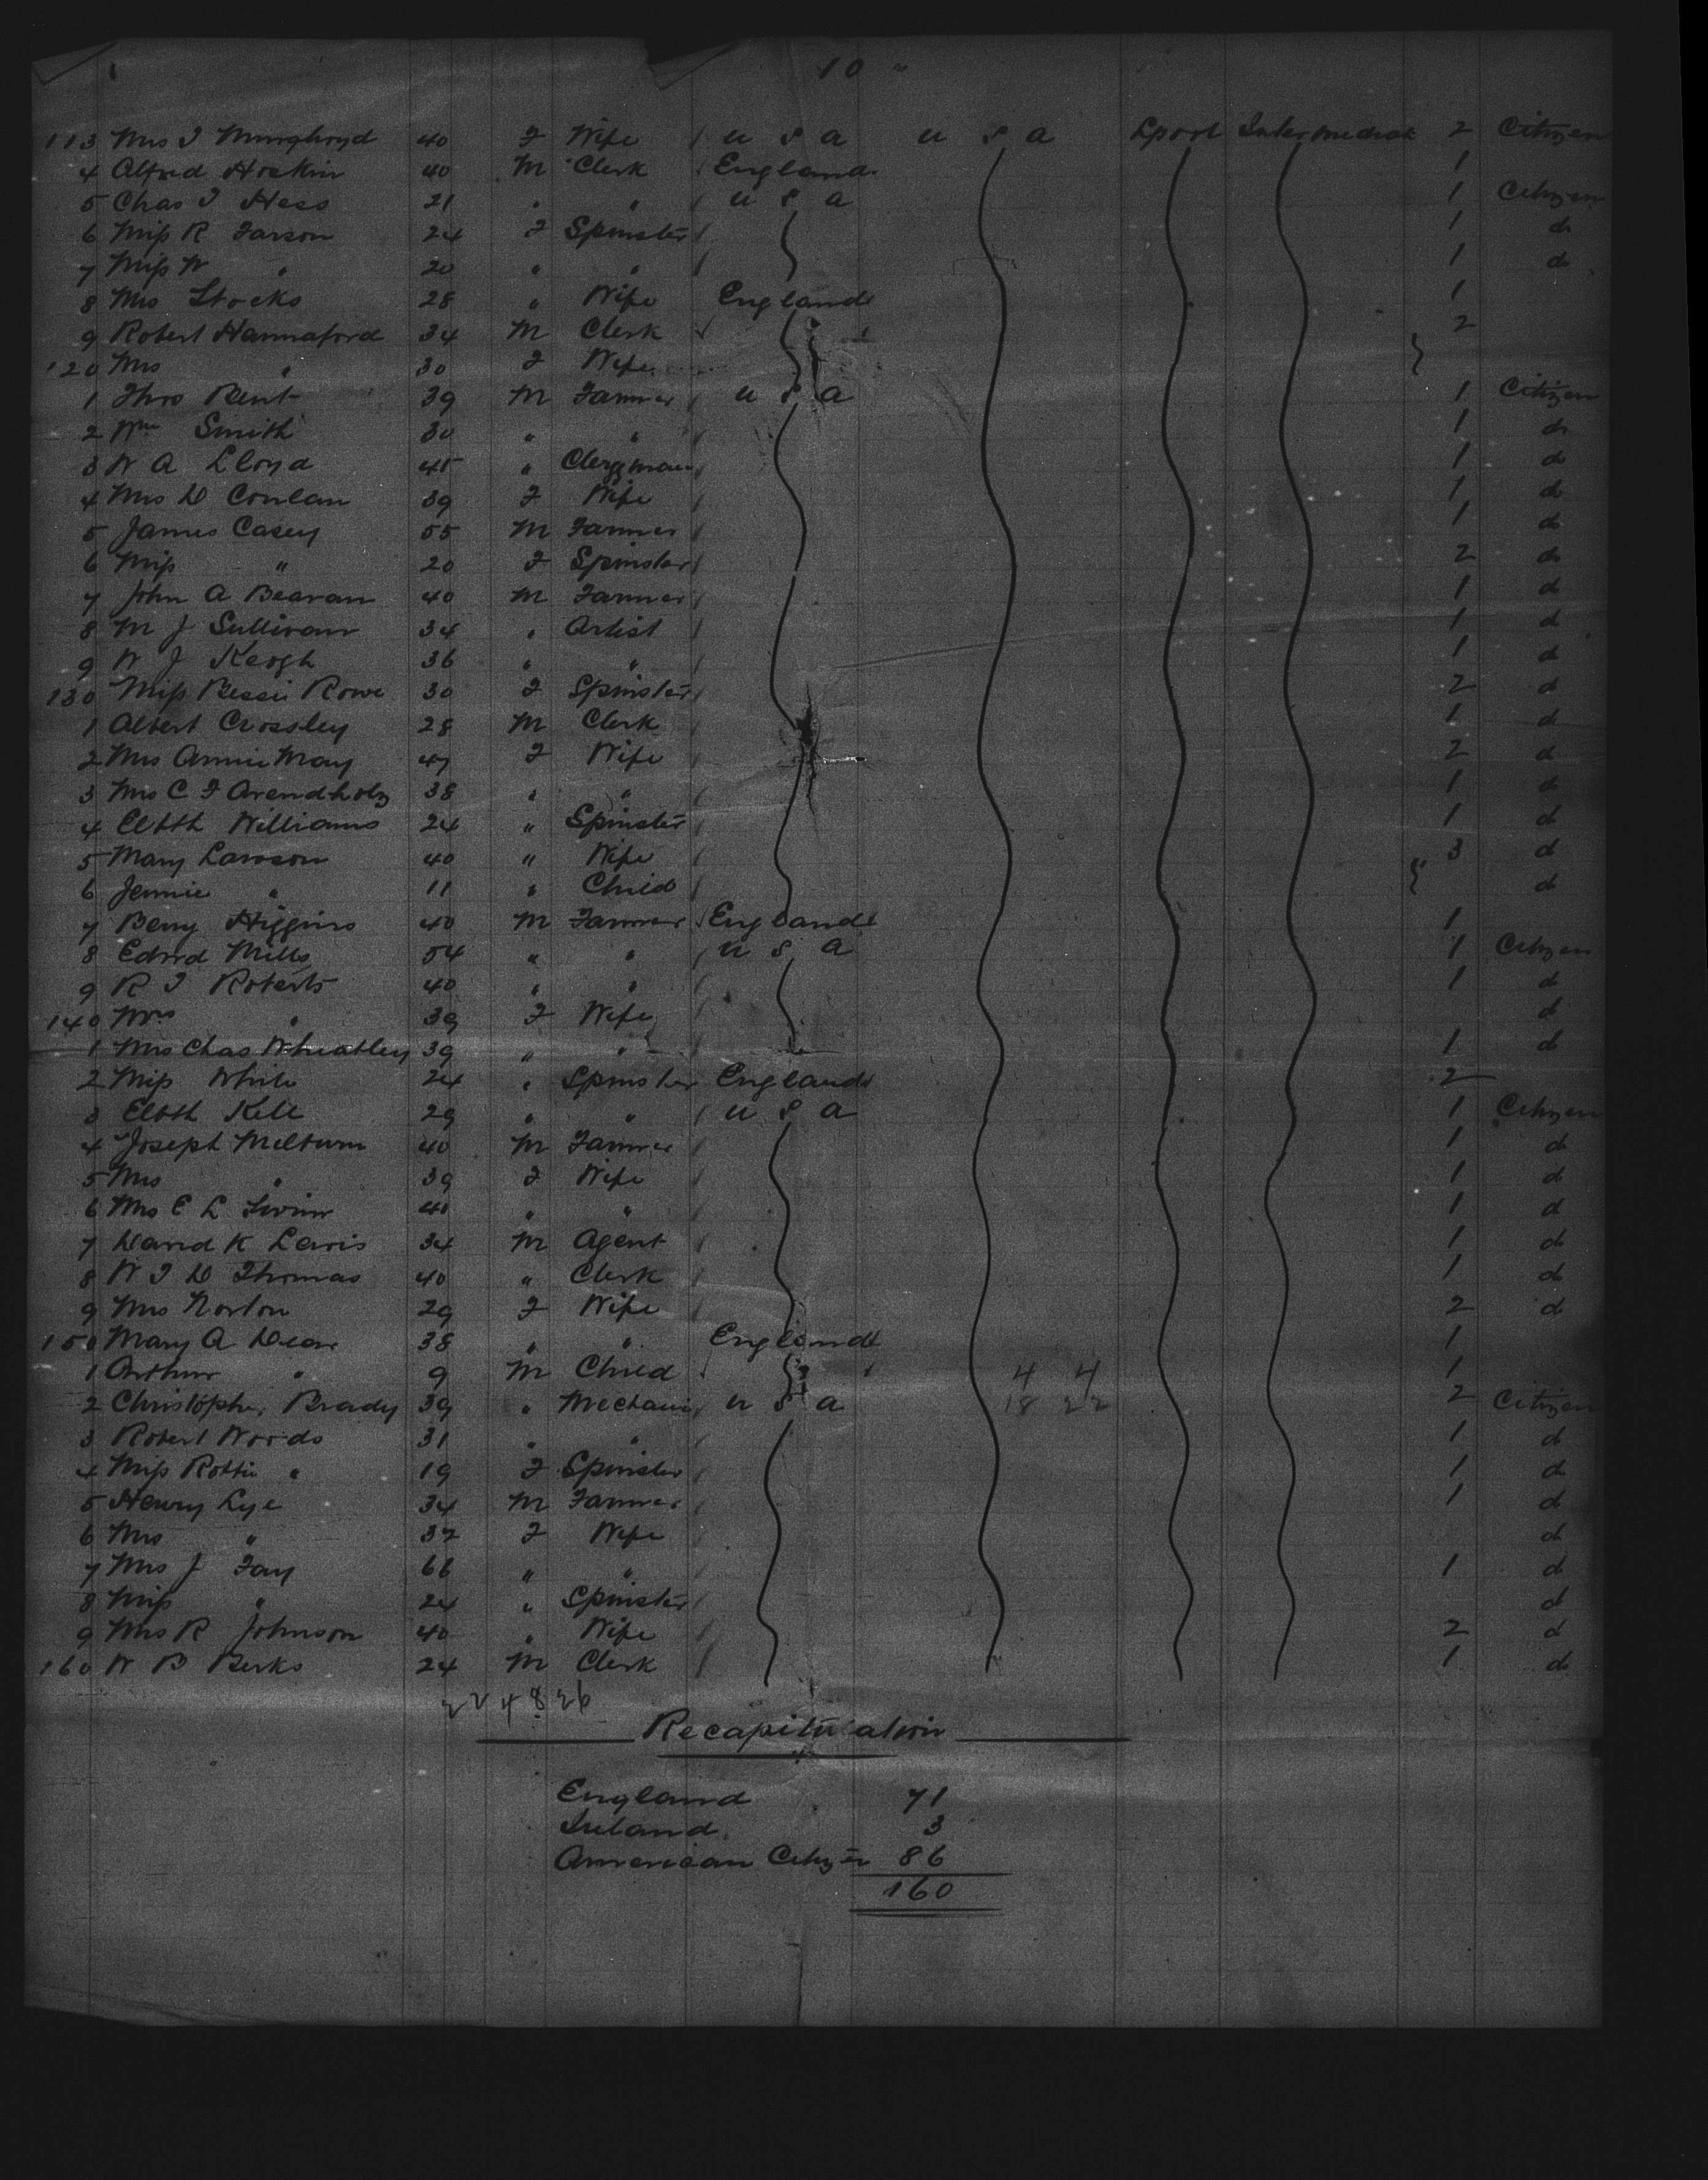 10
113 Mrs T Murghroyd 40 F Wife U S A U S A Lpool Intermediate 2 Citizen
4 Alfred Hoskin 40 M Clerk England 1
5 Chas T Hess 21 " " U S A 1 Citizen
6 Miss R Farson 24 F Spinster 1 do
7 Miss W " 20 " " 1 do
8 Mrs Stocks 28 " Wife England 1
9 Robert Hannaford 34 M Clerk 2
120 Mrs " 30 F Wife
1 Thos Bent 39 M Farmer U S A 1 Citizen
2 Wm Smith 30 " " 1 do
3 W A Lloyd 45 " Clergyman 1 do
4 Mrs D Conlan 39 F Wife 1 do
5 James Casey 55 M Farmer 1 do
6 Miss " 20 F Spinster 2 do
7 John A Beavan 40 M Farmer 1 d
8 M J Sullivan 34 " Artist 1 d
9 W J Keogh 36 " " 1 d
130 Miss Bessie Rowe 30 F Spinster 2 d
1 Albert Crossley 28 M Clerk 1 d
2 Mrs Annie May 47 F Wife 2 d
3 Mrs C F Arendholz 38 " " 1 d
4 Elbth Williams 24 " Spinster 1 d
5 Mary Lawson 40 " Wife 3 d
6 Jennie " 11 " Child " d
7 Benj Higgins 40 M Farmer England 1
8 Edwd Mills 54 " " U S A 1 Citizen
9 R T Roberts 40 " " 1 d
140 Mrs " 39 F Wife d
1 Mrs Chas Wheatley 39 " " 1 d
2 Miss White 24 " Spinster England 2
3 Elbth Kell 29 " " U S A 1 Citizen
4 Joseph Melturn 40 M Farmer 1 d
5 Mrs " 39 F Wife 1 d
6 Mrs E L 40 " " 1 d
7 David K Lewis 34 M Agent 1 do
8 W T D Thomas 40 " Clerk 1 do
9 Mrs Norton 29 F Wife 2 d
150 Mary A Dean 38 " " England 1
1 Arthur " 9 M Child 4 4 1
2 Christopher Brady 39 " Mechanic U S A 18 22 2 Citizen
3 Robert Woods 31 " " 1 d
4 Miss Rottie " 19 F Spinster 1 d
5 Henry Lye 34 M Farmer 1 d
6 Mrs " 32 F Wife do
7 Mrs J Fay 66 " " 1 d
8 Miss " 24 " Spinster d
9 Mrs R Johnson 40 " Wife 2 d
160 W B Berks 24 M Clerk 1 do
22 4 8 26
Recapitulation
England 71
Ireland 3
American Citizen 86
160